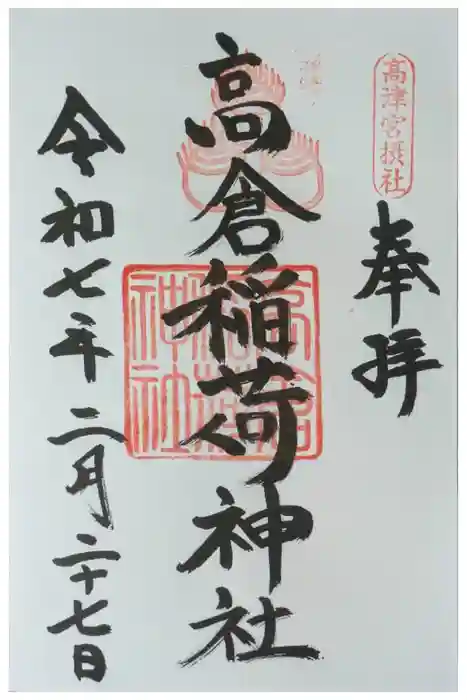 高津宮摂社
奉拝
高倉稲荷神社
高倉稲荷神社
令和七年二月二十七日